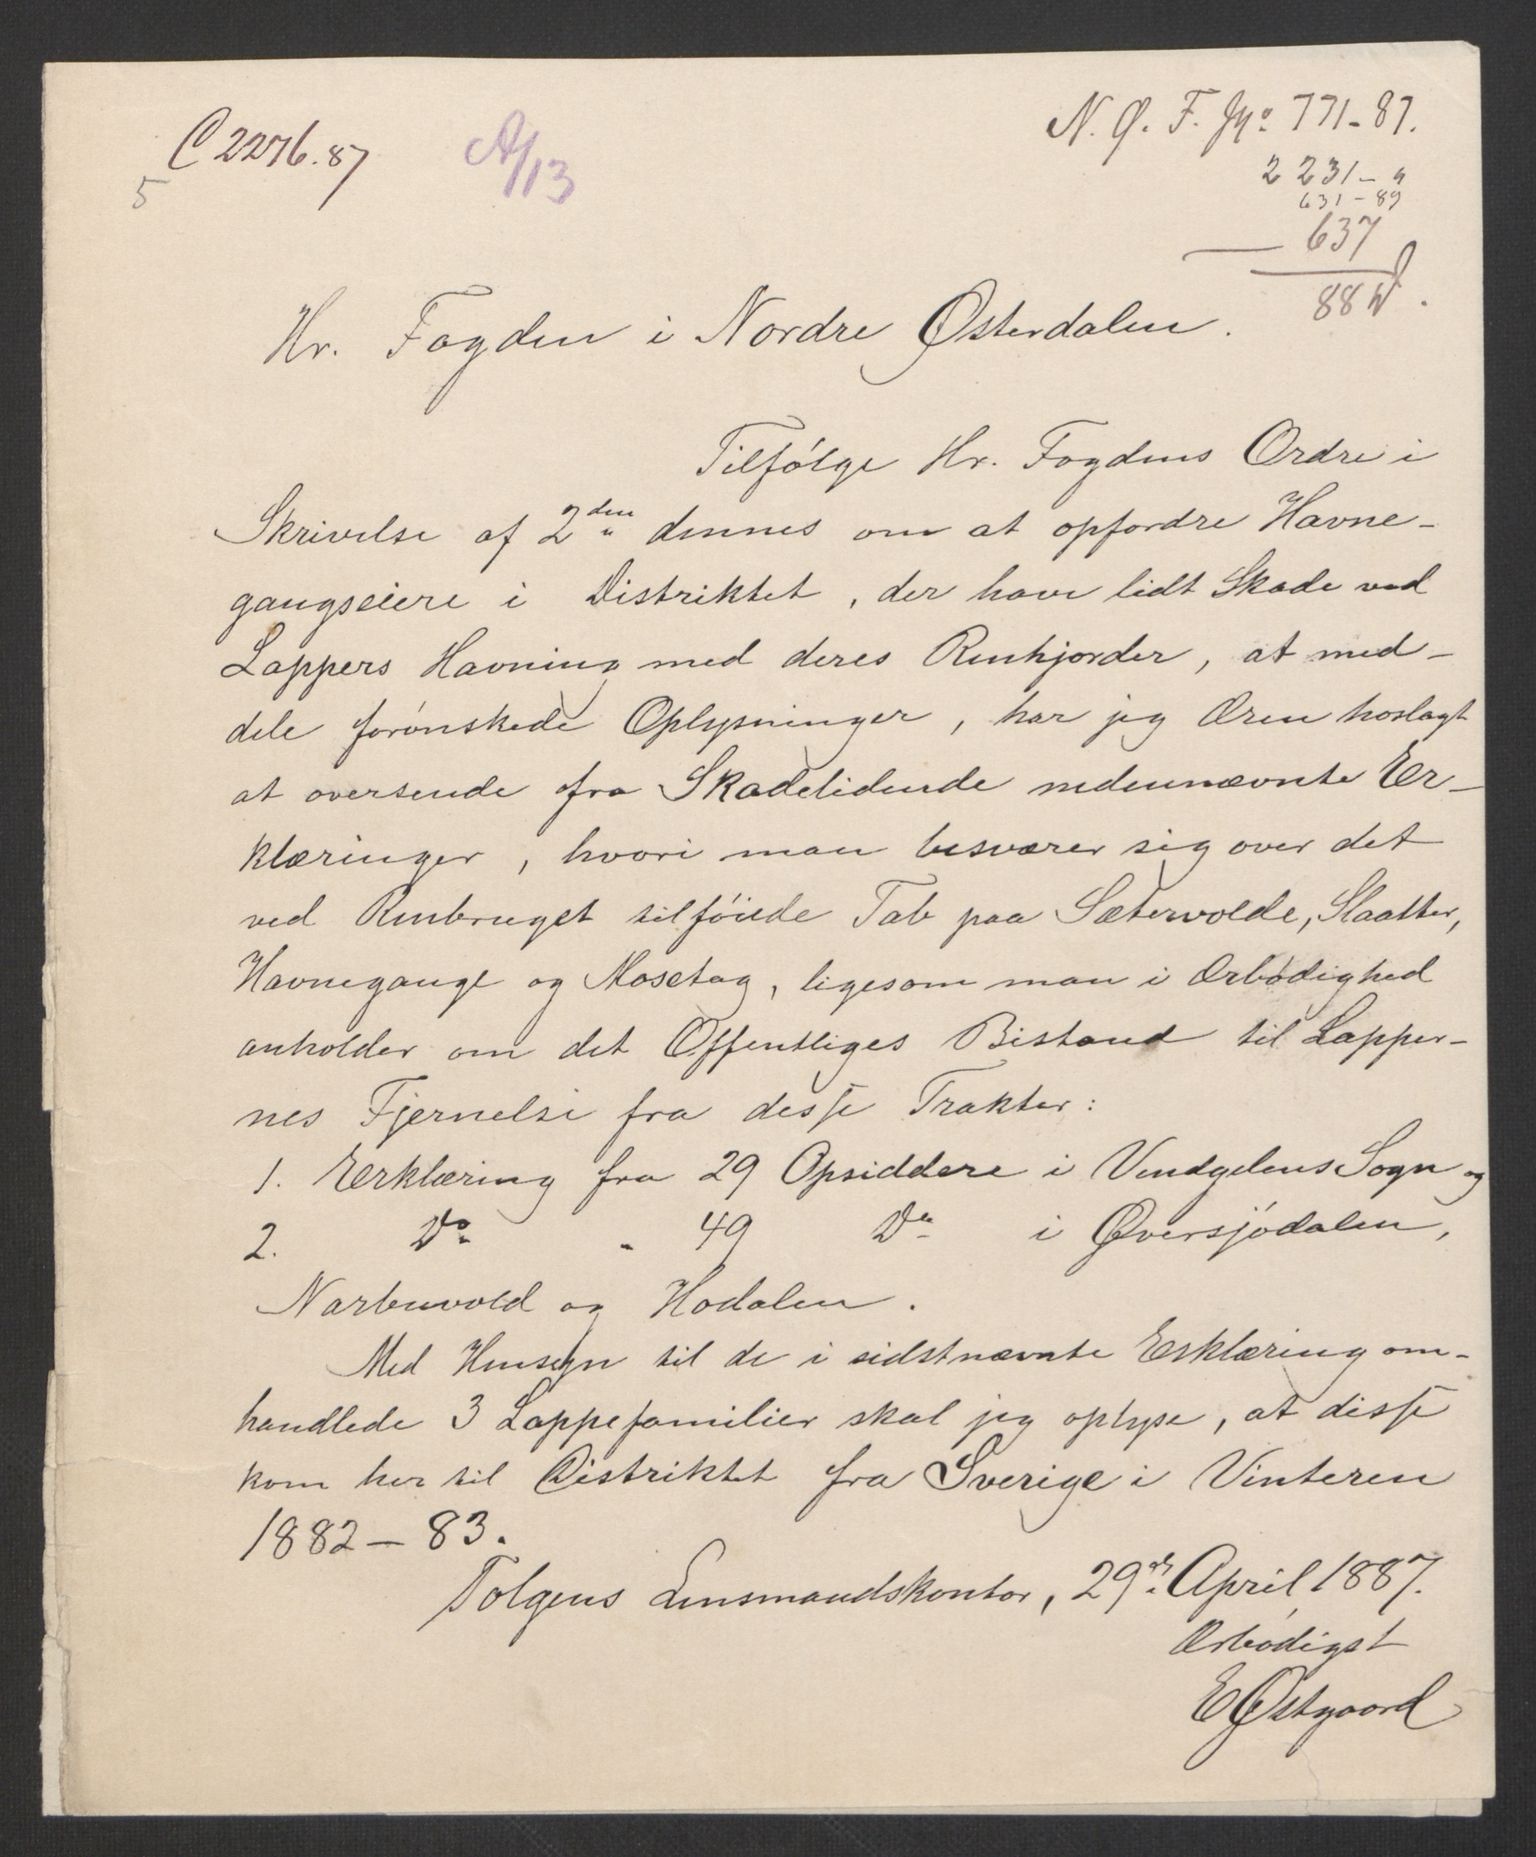 C 2276.87
A/13
5
N. Ø. F. Jr. 771-87.
2231 - "
631-89
637
88
Hr. Fogden i Nordre Østerdalen.
Tilfølge Hr. Fogdens Ordre i
Skrivelse af 2den dennes om at opfordre Havne-
gangseiere i Distriktet, der have lidt Skade ved
Lappers Havning med deres Renhjorder, at med-
dele forønskede Oplysninger, har jeg Æren hoslagt
at oversende fra Skadelidende nedennævnte Er-
klæringer, hvori man besværer sig over det
ved Renbruget tilføiede Tab paa Sætervolde, Slaatter,
Havnegange og Mosetag, ligesom man i Ærbødighed
anholder om det Offentliges Bistand til Lapper-
nes Fjernelse fra disse Trakter:
1. Erklæring fra 29 Opsiddere i Vindgelens Sogn og
2. Do " 49 Do i Øversjødalen,
Narbuvold og Hodalen.
Med Hensyn til de i sidstnævnte Erklæring om-
handlede 3 Lappefamilier skal jeg oplyse, at disse
kom her til Distriktet fra Sverige i Vinteren
1882-83.
Tolgens Lensmandskontor, 29de April 1887.
Ærbødigst
E Østgaard